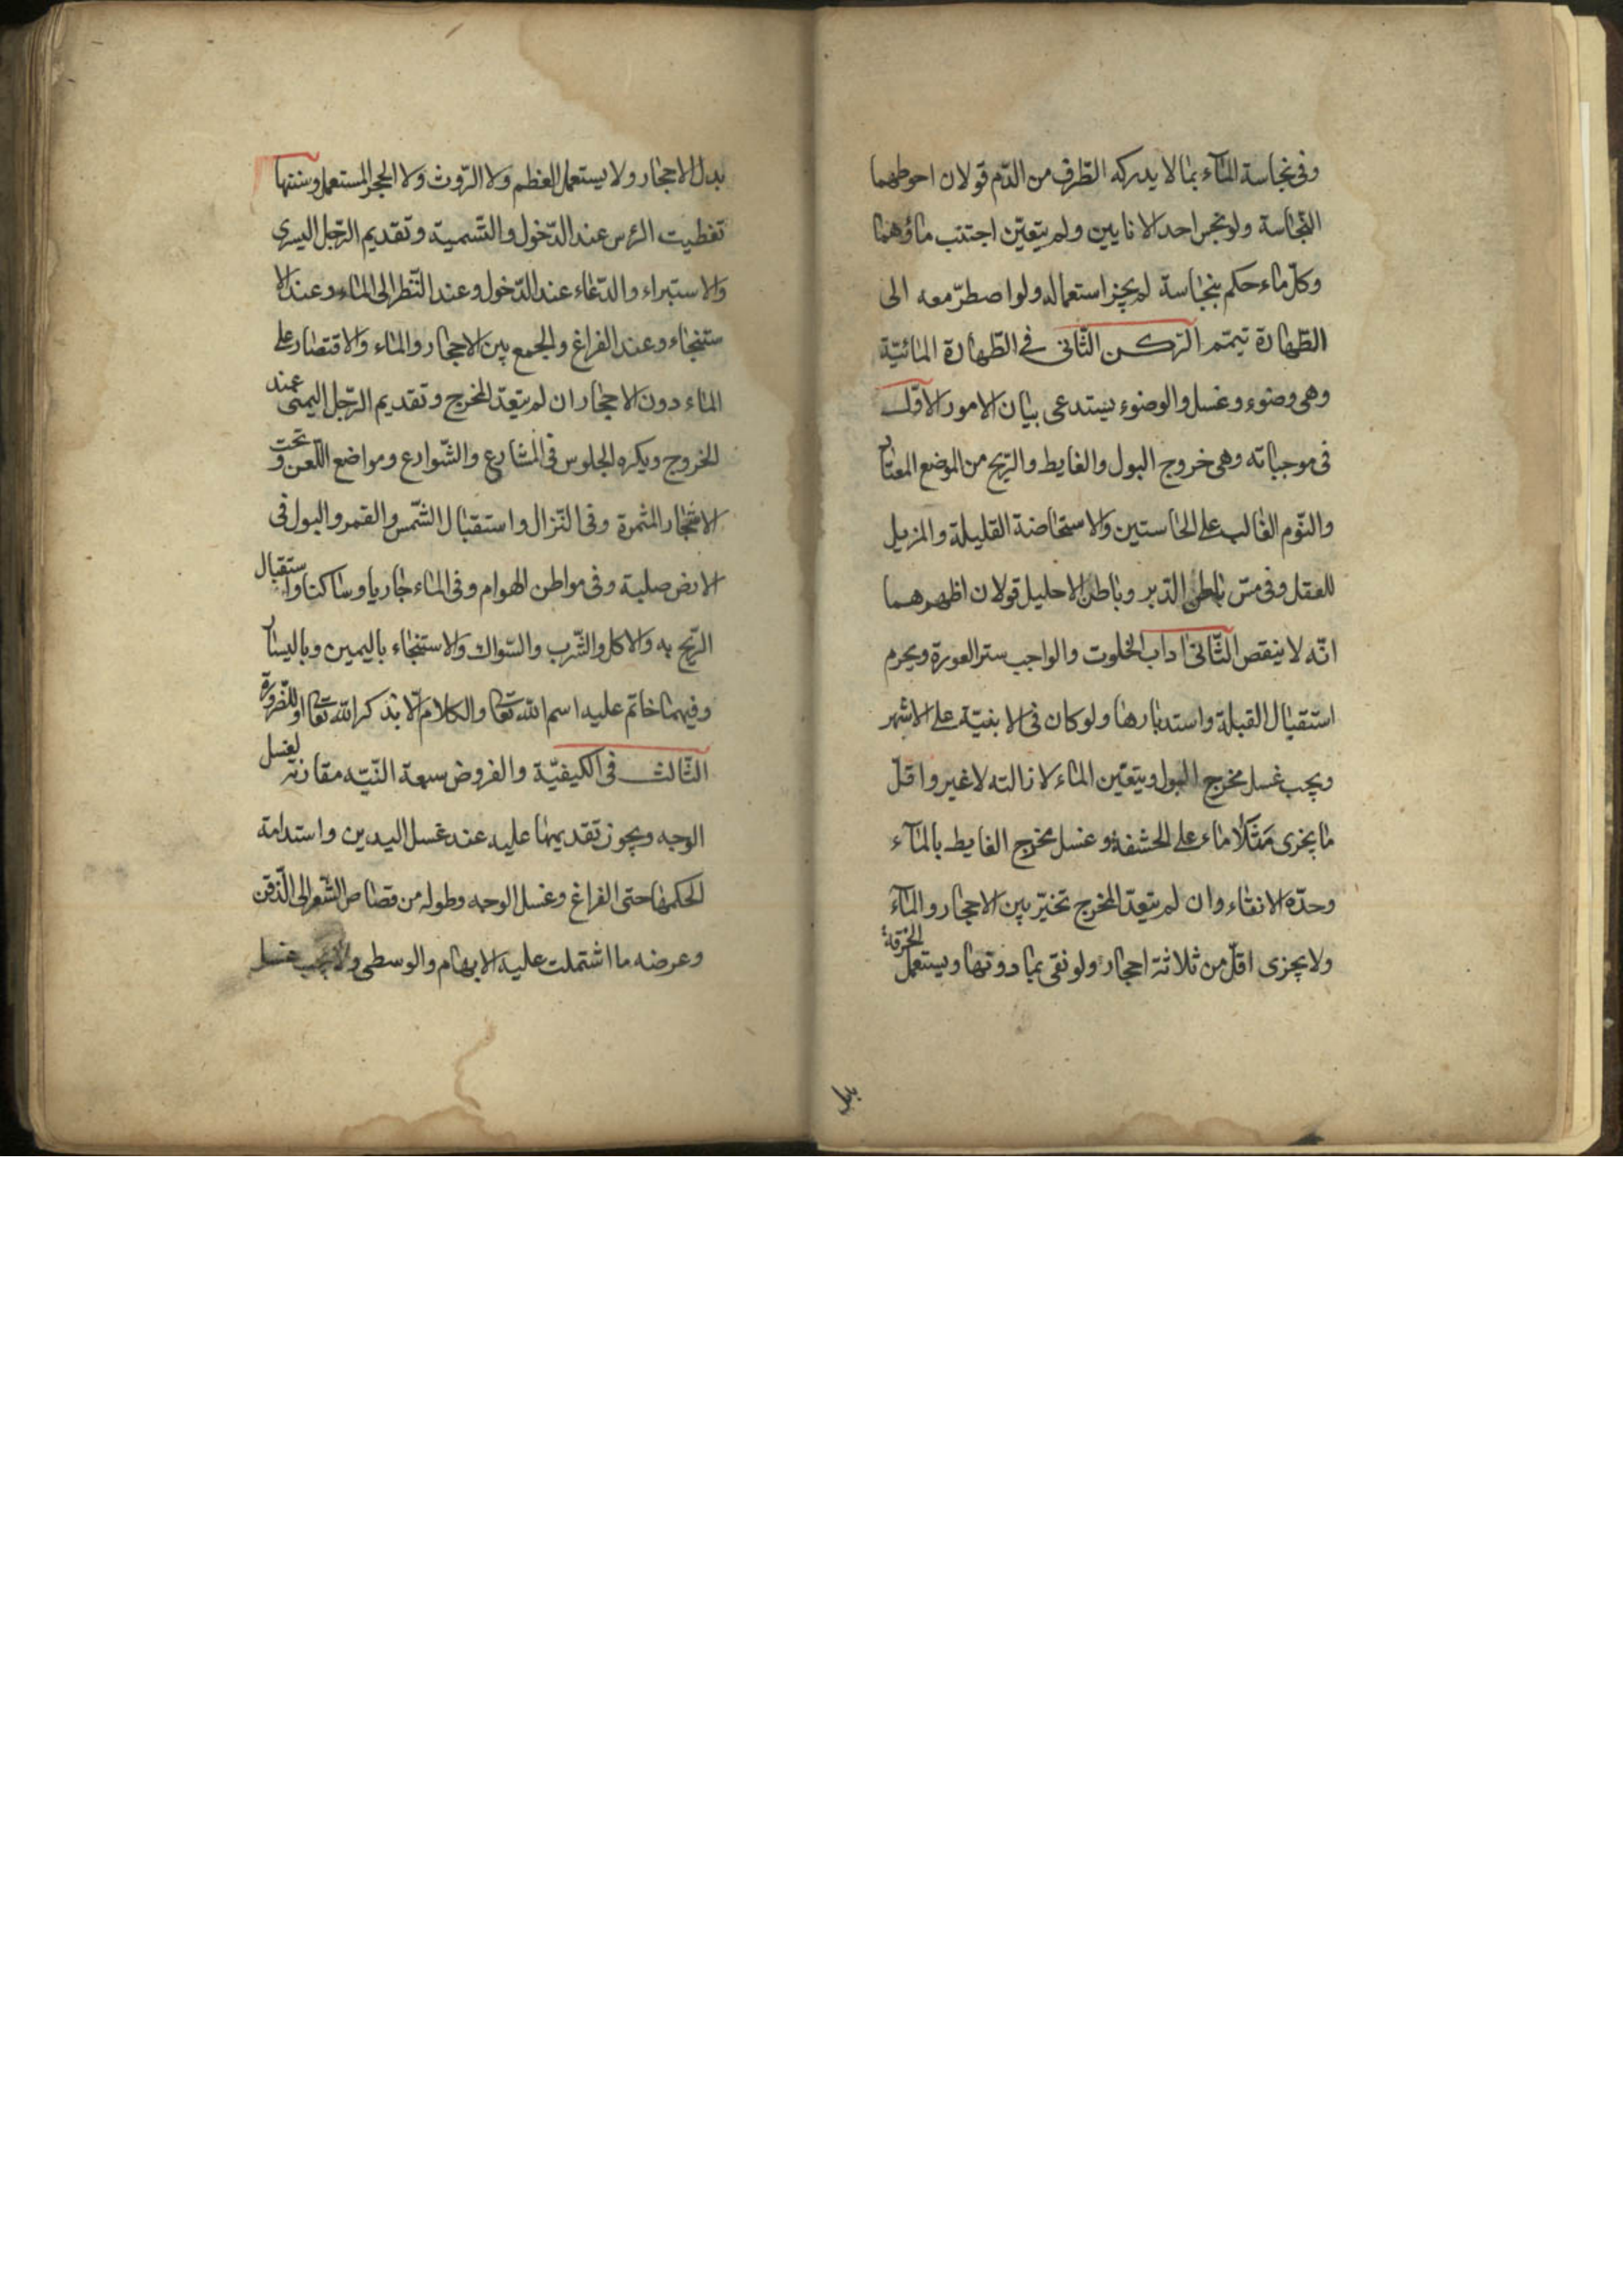 وفى نجاسة المآء بما لا يدركه الطّرف من الدّم قولان احوطهما
النّجاسة ولو نجس احد الانايين ولم يتعيّن اجتنب ماؤهما
وكلّ ماء حكم بنجاسة لم يجز استعماله ولو اصطرّ معه الى
الطّهارة تيمّم الرّكن الثّانى فى الطّهارة المائيّة
وهى وضوء وغسل والوضوء يستدعى بيان الامور الاوّل
فى موجباته وهى خروج البول والغايط والرّيح من الموضع المعتاد
والنّوم الغالب على الحاستين والاستحاضة القليلة والمزيل
للعقل وفى مسّ باطن الدّبر وباطن الاحليل قولان اظهرهما
انّه لا ينقص الثّانى اداب الخلوت والواجب ستر العورة ويحرم
استقبال القبلة واستدبارها ولو كان فى الابنيّة على الاشهر
ويجب غسل مخرج البول ويتعيّن الماء لازالته لا غير واقلّ
ما يجزى مثلا ماء على الحشفة وغسل مخرج الغايط بالمآء
وحدّه الانقاء وان لم يتعدّ المخرج تخيّر بين الاحجار والمآء
ولا يجزى اقلّ من ثلاثة احجار ولو نقى بما دونها ويستعمل الخرقة
بدل
بدل الاحجار ولا يستعمل العظم ولا الرّوث ولا الحجر المستعمل وسننها
تغطيت الرّس عند الدّخول والتّسمية وتقديم الرّجل اليسرى
والاستبراء والدّعاء عند الدّخول وعند النّظر الى الماء وعند الا
ستنجاء وعند الفراغ والجمع بين الاحجار والماء والاقتصار على
الماء دون الاحجار ان لم يتعدّ المخرج وتقديم الرّجل اليمنى عند
الخروج ويكره الجلوس فى المشارع والشّوارع ومواضع اللّعن وتحت
الاشجار المثمرة وفى النّزال واستقبال الشّمس والقمر والبول فى
الارض صلبة وفى مواطن الهوام وفى الماء جاريا وساكنا واستقبال
الرّيح به والاكل والشّرب والسّواك والاستنجاء باليمين وباليسار
وفيهما خاتم عليه اسم الله تعالى والكلام الّا بذكر الله تعالى او للضّرورة
الثّالث فى الكيفيّة والفروض سبعة النّيّه مقارنة لغسل
الوجه ويجوز تقديمها عليه عند غسل اليدين واستدامة
الحكمها حتى الفراغ وغسل الوجه وطوله من قصاص الشّعر الى الذّقن
وعرضه ما اشتملت عليه الابهام والوسطى ولا يجب غسل